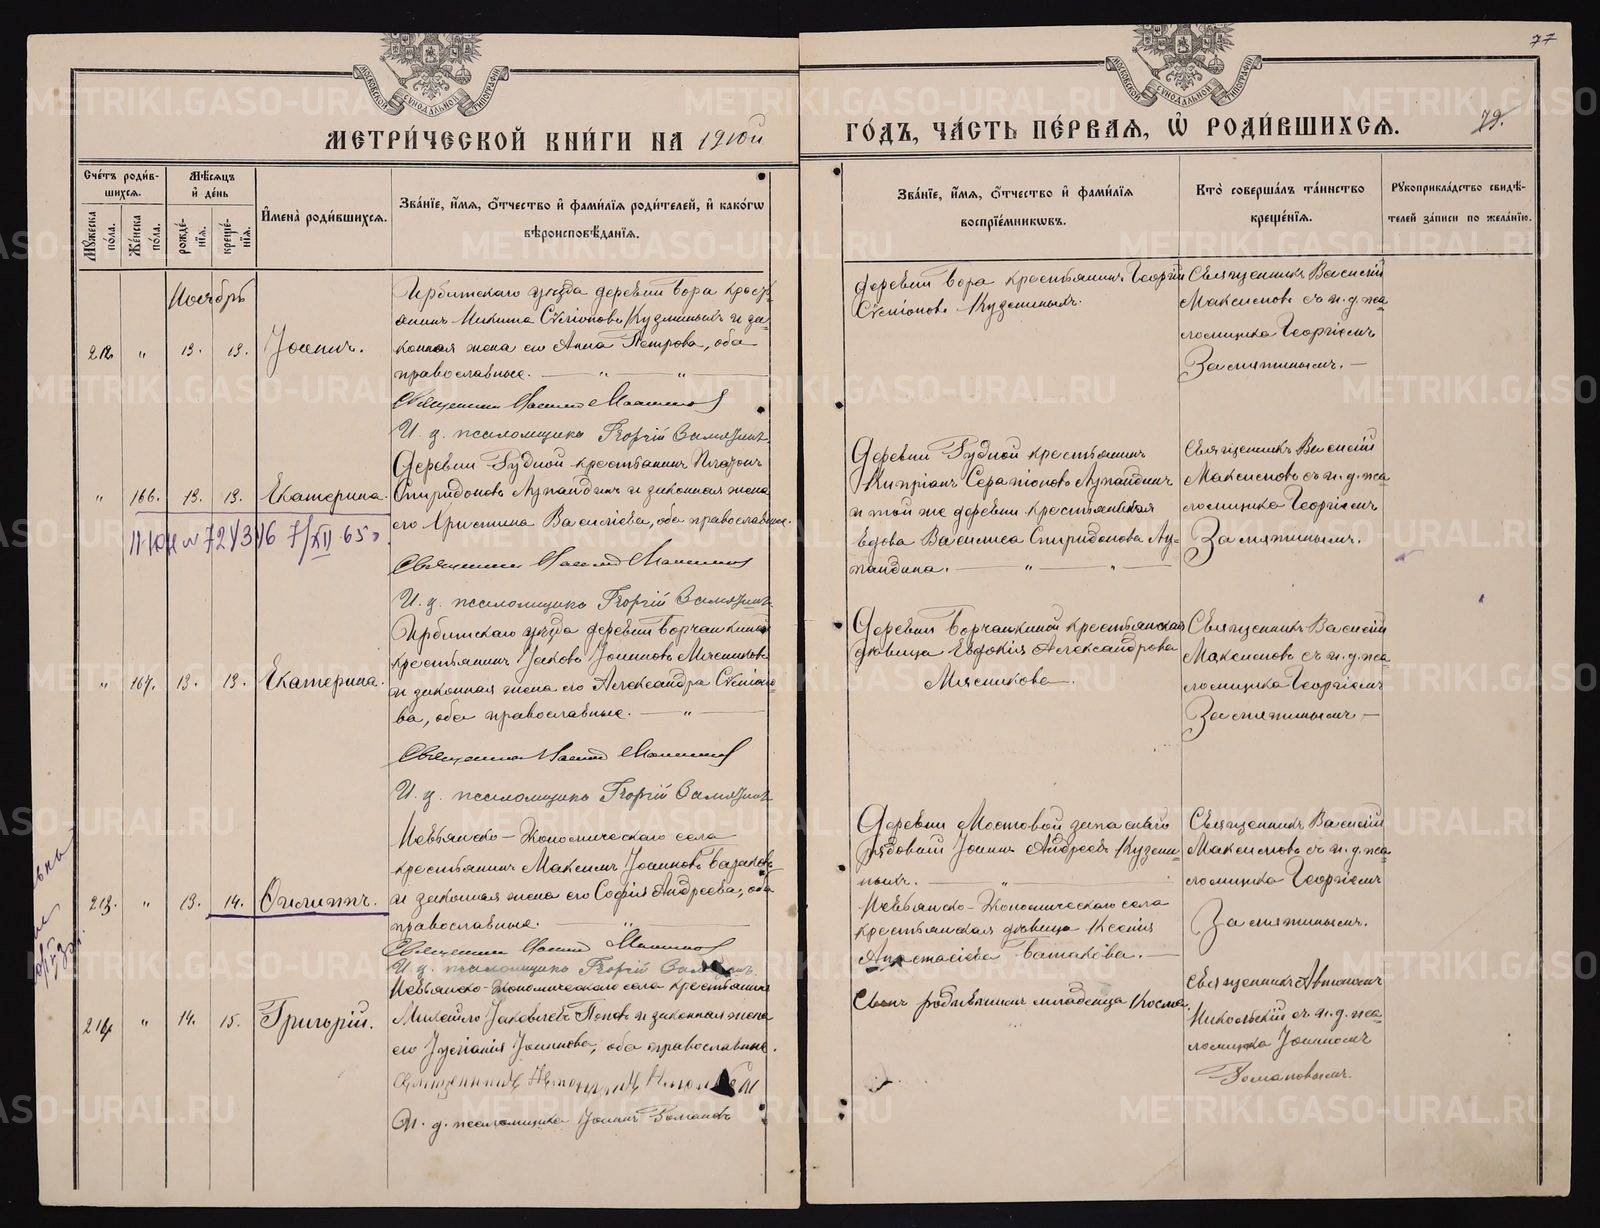 МЕТРИ́ЧЕСКОЙ КНИ́ГИ НА 1910й
ГО́ДЪ, ЧА́СТЬ ПЕ́РВАѦ, Ѡ҆ РОДИ́ВШИХСѦ.
77
79.
Сче́тъ роди́в-
шихсѧ.
Мꙋ́жеска по́ла.
Же́нска по́ла.
Мѣ́сѧцъ
и҆ де́нь
рожде́-
нїѧ.
креще́-
нїѧ.
И҆мена̀ роди́вшихсѧ.
Зва́нїе, и҆́мѧ, ѻ҆́тчество и҆ фами́лїѧ роди́телей, и҆ како́гѡ
вѣроисповѣ́данїѧ.
Зва́нїе, и҆́мѧ, ѻ҆́тчество и҆ фами́лїѧ
воспрїе́мникѡвъ.
Кто̀ соверша́лъ та́инство
креще́нїѧ.
Рꙋкоприкла́дство свидѣ́-
телей за́писи по жела́нїю.
Ноябрь
212. " 13. 13. Іоаннъ.
Ирбитскаго уѣзда деревни Бора кресть-
янинъ Никита Сѵмеоновъ Кузминыхъ и за-
конная жена его Анна Петрова, оба
православные. — " — " —
Священникъ Василій Максимовъ
И. д. псаломщика Георгій Замятинъ
деревни Бора крестьянинъ Георгій
Сѵмеоновъ Кузминыхъ.
Священникъ Василій
Максимовъ съ и. д. пса-
ломщика Георгіемъ
Замятинымъ. —
" 166. 13. 13. Екатерина.
11-юн № 721/316 7/XII 65г.
Деревни Рудной крестьянинъ Платонъ
Спиридоновъ Лупандинъ и законная жена
его Христина Василіева, оба православные.
Священникъ Василій Максимовъ
И. д. псаломщика Георгій Замятинъ
Деревни Рудной крестьянинъ
Кипріанъ Серапіоновъ Лупандинъ
и той же деревни крестьянская
вдова Василиса Спиридонова Лу-
пандина. — " — " —
Священникъ Василій
Максимовъ съ и. д. пса-
ломщика Георгіемъ
Замятинымъ.
" 167. 13. 13. Екатерина.
Ирбитскаго уѣзда деревни Боршанкиной
крестьянинъ Іаковъ Іоанновъ Мясниковъ
и законная жена его Александра Сѵмеоно-
ва, оба православные. — " —
Священникъ Василій Максимовъ
И. д. псаломщика Георгій Замятинъ
Деревни Боршанкиной крестьянская
дѣвица Евдокія Александрова
Мясникова.
Священникъ Василій
Максимовъ съ и. д. пса-
ломщика Георгіемъ
Замятинымъ —
213. " 13. 14. Филиппъ.
Невьянско-Экономическаго села
крестьянинъ Максимъ Іоанновъ
и законная жена его Софія Андреева, оба
православные. "
Священникъ Василій Максимовъ
И. д. псаломщика Георгій Замятинъ.
Деревни Мостовой запасный
рядовый Іоаннъ Андреевъ Кузми-
ныхъ. — " —
Невьянско-Экономическаго села
крестьянская дѣвица Ксенія
Анастасіева Батакова. —
Священникъ Василій
Максимовъ съ и. д. пса-
ломщика Георгіемъ
Замятинымъ.
214 " 14. 15. Григорій.
Невьянско-Экономическаго села крестьянинъ
Михаилъ Іаковлевъ Поповъ и законная жена
его Іуліанія Іоаннова, оба православные.
Священникъ Автономъ Никольскій
И. д. псаломщика Іоаннъ Романовъ
Сынъ родившаго младенца Косма.
Священникъ Автономъ
Никольскій съ и. д. пса-
ломщика Іоанномъ
Романовымъ.
METRIKI.GASO-URAL.RU